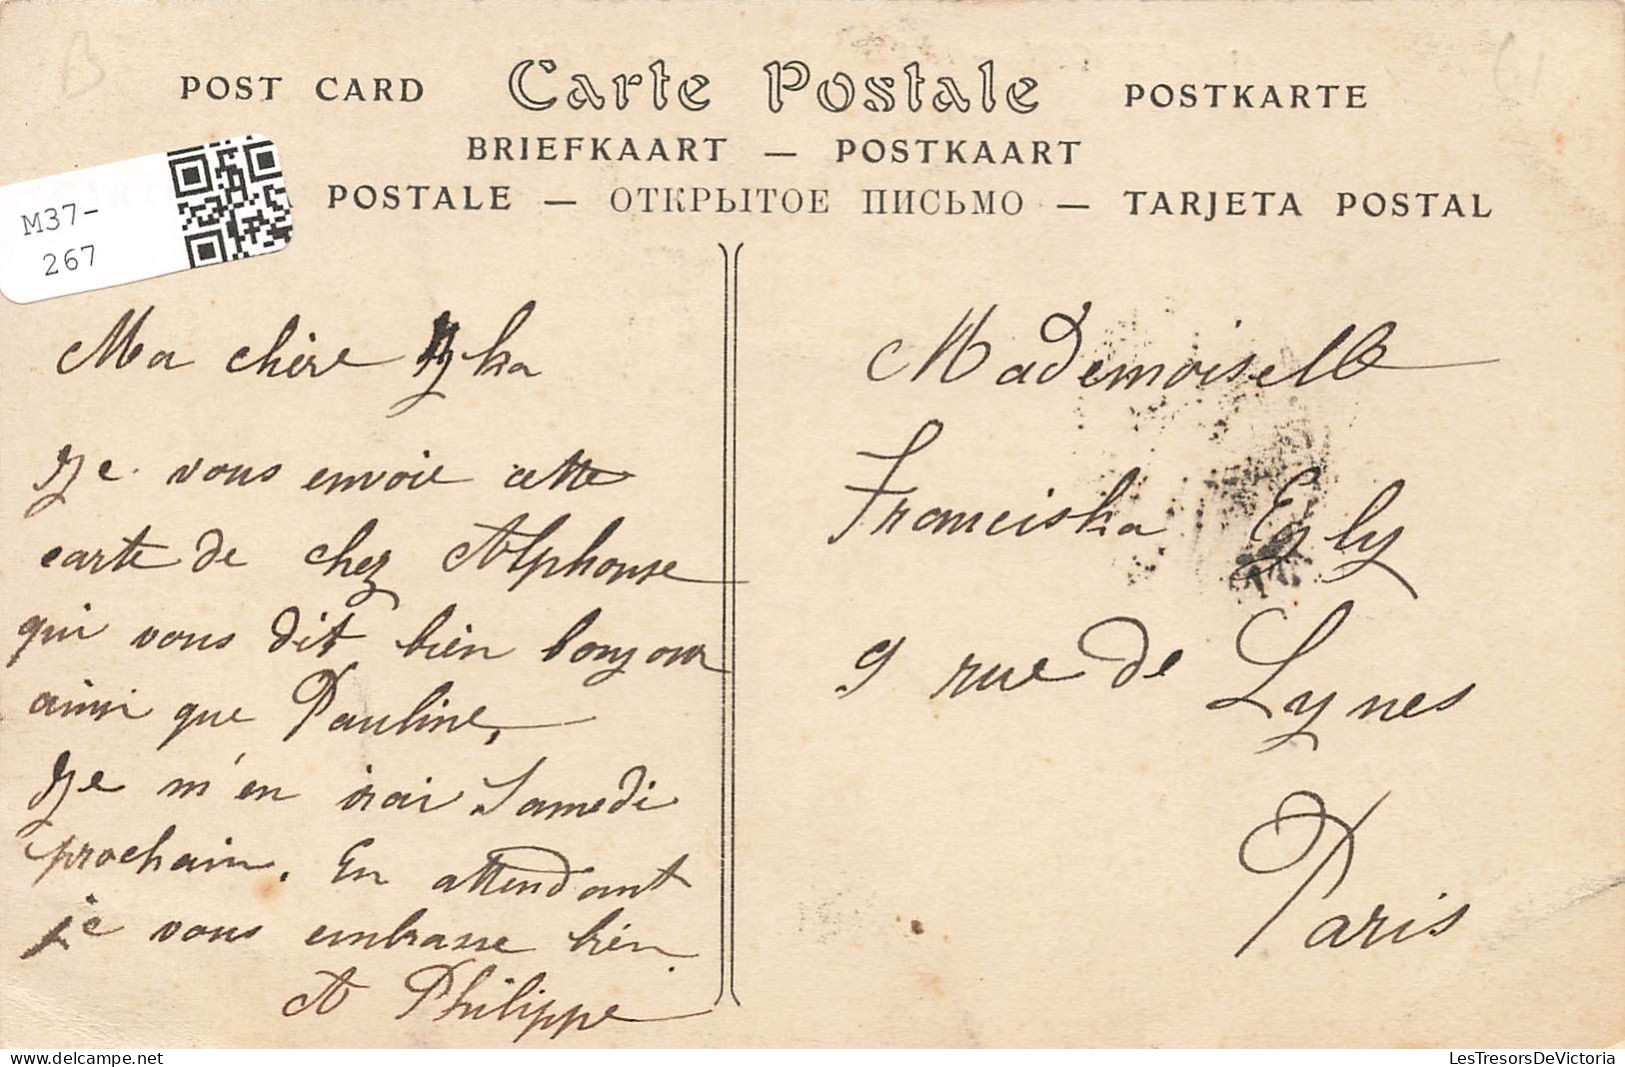 POST CARD Carte Postale POSTKARTE
BRIEFKAART — POSTKAART
POSTALE — ОТКРЫТОЕ ПИСЬМО — TARJETA POSTAL
M37-
267
Ma chère
Je vous envoie cette
carte de chez Alphonse
qui vous dit bien bonjour
ainsi que Pauline,
Je m'en irai Samedi
prochain. En attendant
je vous embrasse bien
A Philippe
Mademoiselle
Franciska Egly
9 rue de Lynes
Paris
LesTresorsDeVictoria